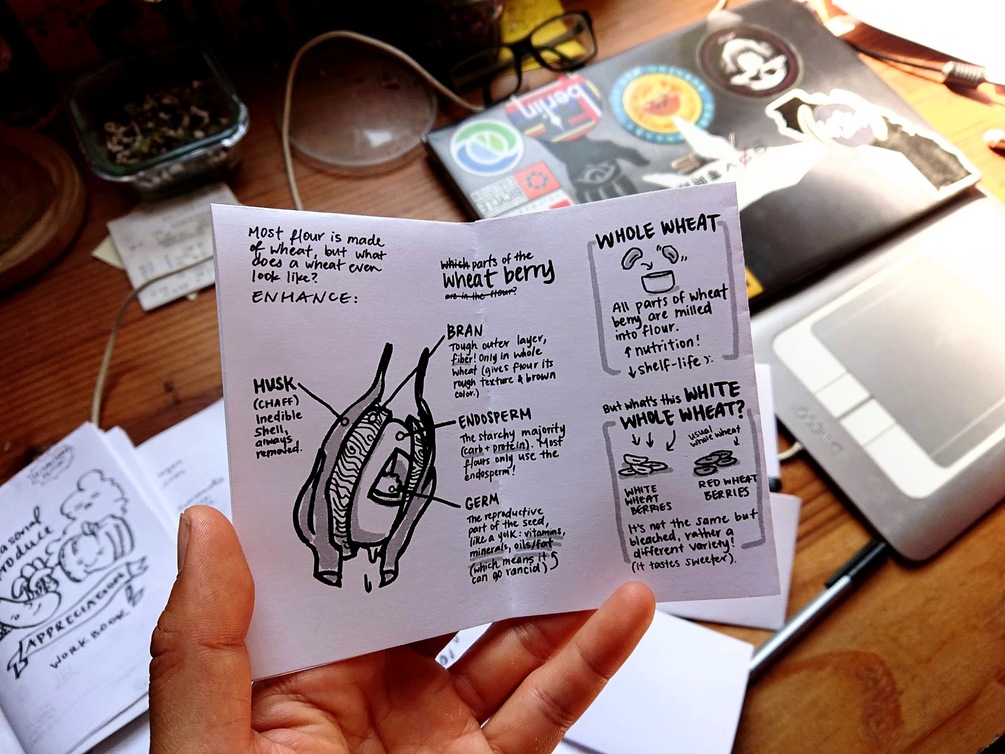 Most flour is made
of wheat, but what
does a wheat even
look like?
ENHANCE:
HUSK
(CHAFF)
Inedible
shell,
always
removed.
which parts of the
wheat berry
are in the flour?
BRAN
Tough outer layer,
fiber! Only in whole
wheat (gives flour its
rough texture & brown
color.)
ENDOSPERM
The starchy majority
(carb + protein). Most
flours only use the
endosperm!
GERM
The reproductive
part of the seed,
like a yolk: vitamins,
minerals, oils/fat
(which means it
can go rancid)
WHOLE WHEAT
All parts of wheat
berry are milled
into flour.
↑ nutrition!
↓ shelf-life ):
But what's this WHITE
WHOLE WHEAT?
usual
whole wheat
WHITE
WHEAT
BERRIES
RED WHEAT
BERRIES
It's not the same but
bleached, rather a
different variety!
(it tastes sweeter).
PRODUCE
APPRECIATION
WORKBOOK
berlin